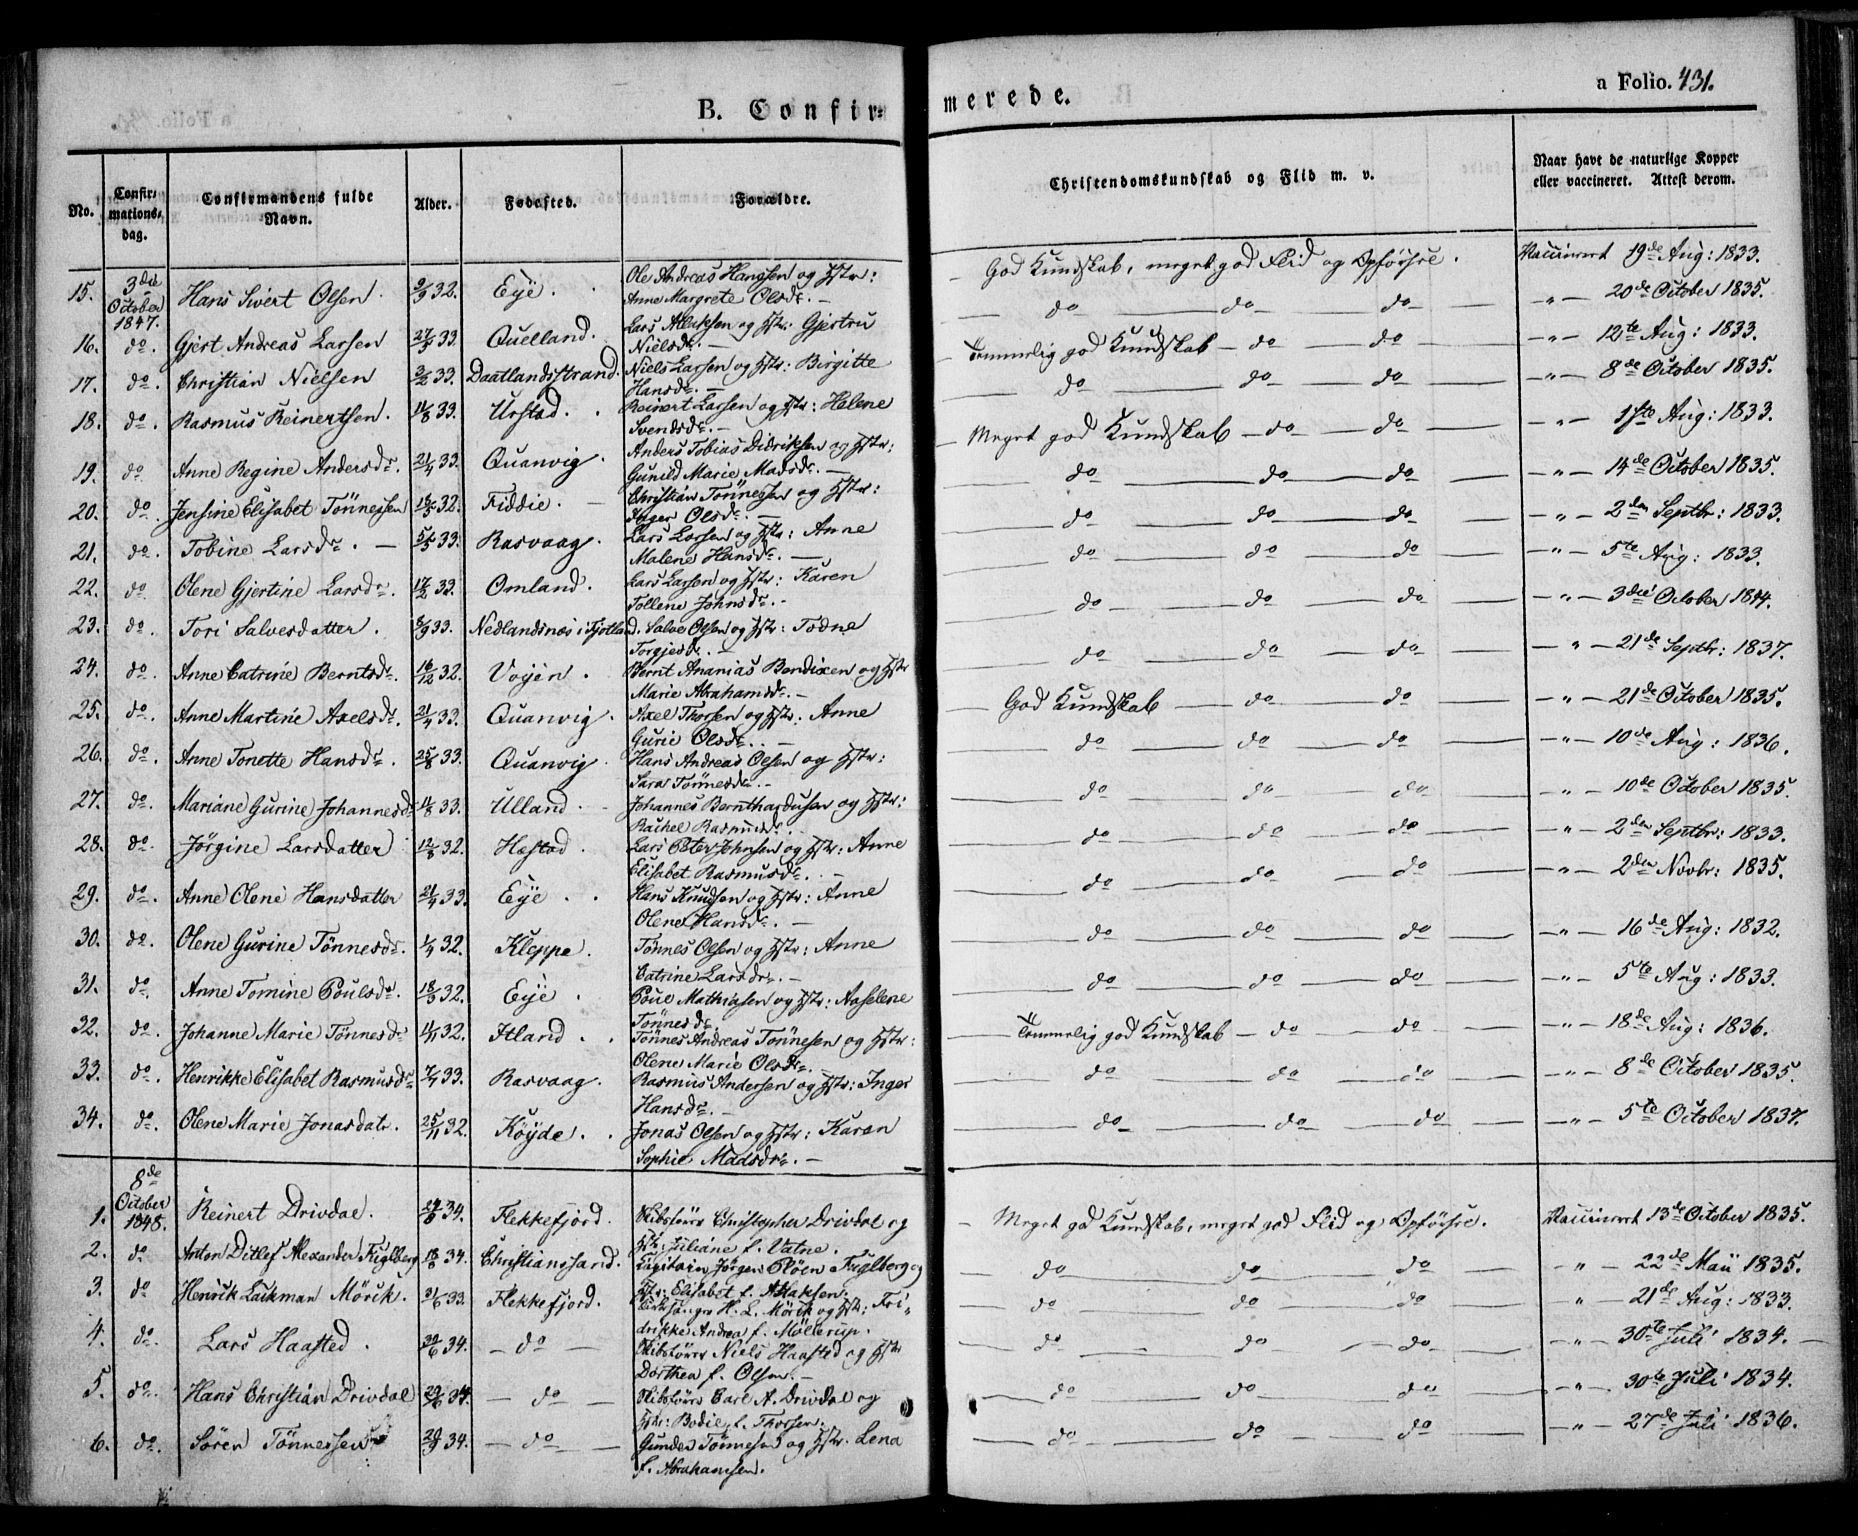 B. Confir-
merede.
a Folio. 431.
No.
Confir-
mations-
dag.
Confirmandens fulde
Navn.
Alder.
Fødested.
Forældre.
Christendomskundskab og Flid m. v.
Naar havt de naturlige Kopper
eller vaccineret. Attest derom.
15. 3die October 1847. Hans Sivert Olsen. 32. Eye. Ole Andreas Hanssen og Hstr: Anne Margrete Olsdr. — God Kundskab, meget god Flid og Opførsel. Vaccineret 19de Aug: 1833.
16. do. Gjert Andreas Larsen 27/3 33. Quelland. Lars Atlaksen og Hstr: Gjertru Nielsdr. — do — do — do — " — 20de October 1835.
17. do. Christian Nielsen 2/2 33. Daatlandsstrand. Niels Larsen og Hstr: Birgitte Hansdr. — Temmelig god Kundskab — do — do — " — 12te Aug: 1833.
18. do. Rasmus Reinertsen. 33. Urstad. Reinert Larsen og Hstr: Helene Svendsdr. — do — do — do — " — 8de October 1835.
19. do Anne Regine Andersdr. 21/4 33. Quanvig. Anders Tobias Didriksen og Hstr: Gunild Marie Madsdr. — Meget god Kundskab — do — do — " — 1ste Aug: 1833.
20. do. Jensine Elisabet Tönnessen 32. Fiddie. Christian Tönnessen og Hstr: Inger Olsdr. — do — do — do — " — 14de October 1835.
21. do. Tobine Larsdr. — 33. Rasvaag. Lars Larsen og Hstr: Anne Malene Hansdr. — do — do — do — " — 2den Septbr: 1833.
22. do. Olene Gjertine Larsdr. 17/2 33. Omland. Lars Larsen og Hstr: Karen Tollene Johnsdr. — do — do — do — " — 5te Aug: 1833.
23. do. Tori Salvesdatter. 33. Nedlandsnæs i Fjotland. Salve Olsen og Hstr: Todne Torgjesdr. — do — do — do — " — 3die October 1814.
24. do. Anne Catrine Berntsdr. 16/12 32. Vojen. Bernt Ananias Bendixen og Hstr Marie Abrahamsdr. — do — do — do — " — 21de Septbr: 1837.
25. do. Anne Martine Axelsdr. 21/4 33. Quanvig. Axel Thorsen og Hstr: Anne Gurie Olsdr. — God Kundskab — do — do — " — 21de October 1835.
26. do. Anne Tonette Hansdr. 25/8 33. Quanvig. Hans Andreas Olsen og Hstr: Sara Tönnesdr. — do — do — do — " — 10de Aug: 1836.
27. do. Mariane Gurine Johannesdr 33. Ulland. Johannes Bernthardusen og Hstr: Rachel Rasmusdr. — do — do — do — " — 10de October 1835.
28. do. Jörgine Larsdatter 12/8 32. Hæstad. Lars Peter Johnsen og Hstr: Anne Elisabet Rasmusdr. — do — do — do — " — 2den Septbr: 1833.
29. do. Anne Olene Hansdatter 21/4 33. Eye. Hans Knudsen og Hstr: Anne Olene Hansdr. — do — do — do — " — 2den Novbr: 1835.
30. do. Olene Gurine Tönnesdr. 1/4 32. Kleppe. Tönnes Olsen og Hstr: Anne Catrine Larsdr. — do — do — do — " — 16de Aug: 1832.
31. do. Anne Tomine Poulsdr. 32. Eye. Poul Mathiasen og Hstr: Aaselene Tönnesdr. do — do — do — " — 5te Aug: 1833.
32. do. Johanne Marie Tönnesdr 32. Itland. Tönnes Andreas Tönnesen og Hstr: Olene Marie Olsdr. — Temmelig god Kundskab — do — do — " — 18de Aug: 1836.
33. do. Henrikke Elisabet Rasmusdr 33. Rasvaag. Rasmus Andersen og Hstr: Inger Hansdr. — do — do — do — " — 8de October 1835.
34. do. Olene Marie Jonasdatr. 25/11 32. Köyde. Jonas Olsen og Hstr: Karen Sophie Madsdr. — do — do — do — " — 5te October 1837.
1. 8de October 1848. Reinert Drivdal. 34. Flekkefjord. Skibsförer Christopher Drivdal og Hstr Juliane f. Vatne. Meget god Kundskab, meget god Flid og Opførsel. Vaccineret 13de October 1835.
2. do Anton Ditlef Alexander Fuglberg 18/8 34. Christianssand. Capitain Jörgen Plöen Fuglberg og Hstr: Elisabet f. do — do — do — " — 22de Maii 1835.
3. do Henrik Laikman Mörik. 33. Flekkefjord. Kirkesanger H. L. Mörik og Hstr: Fridrikke Andrea f. Möllerup. do — do — do " — 21de Aug: 1833.
4. do. Lars Haasted. 34. — do — Skibsförer Niels Haasted og Hstr Dorthea f. Olsen. — do — do — do " — 30te Juli 1834. —
5. do. Hans Christian Drivdal 34. — do Skibsförer Carl A. Drivdal og Hstr: Bodil f. Thorsen. do — do — do — " — 30te Juli 1834.
6. do. Sören Tönnessen 34. — do — Gunder Tönnesen og Hstr. Lena f. Abrahamsen. do — do — do " — 27de Juli 1836.